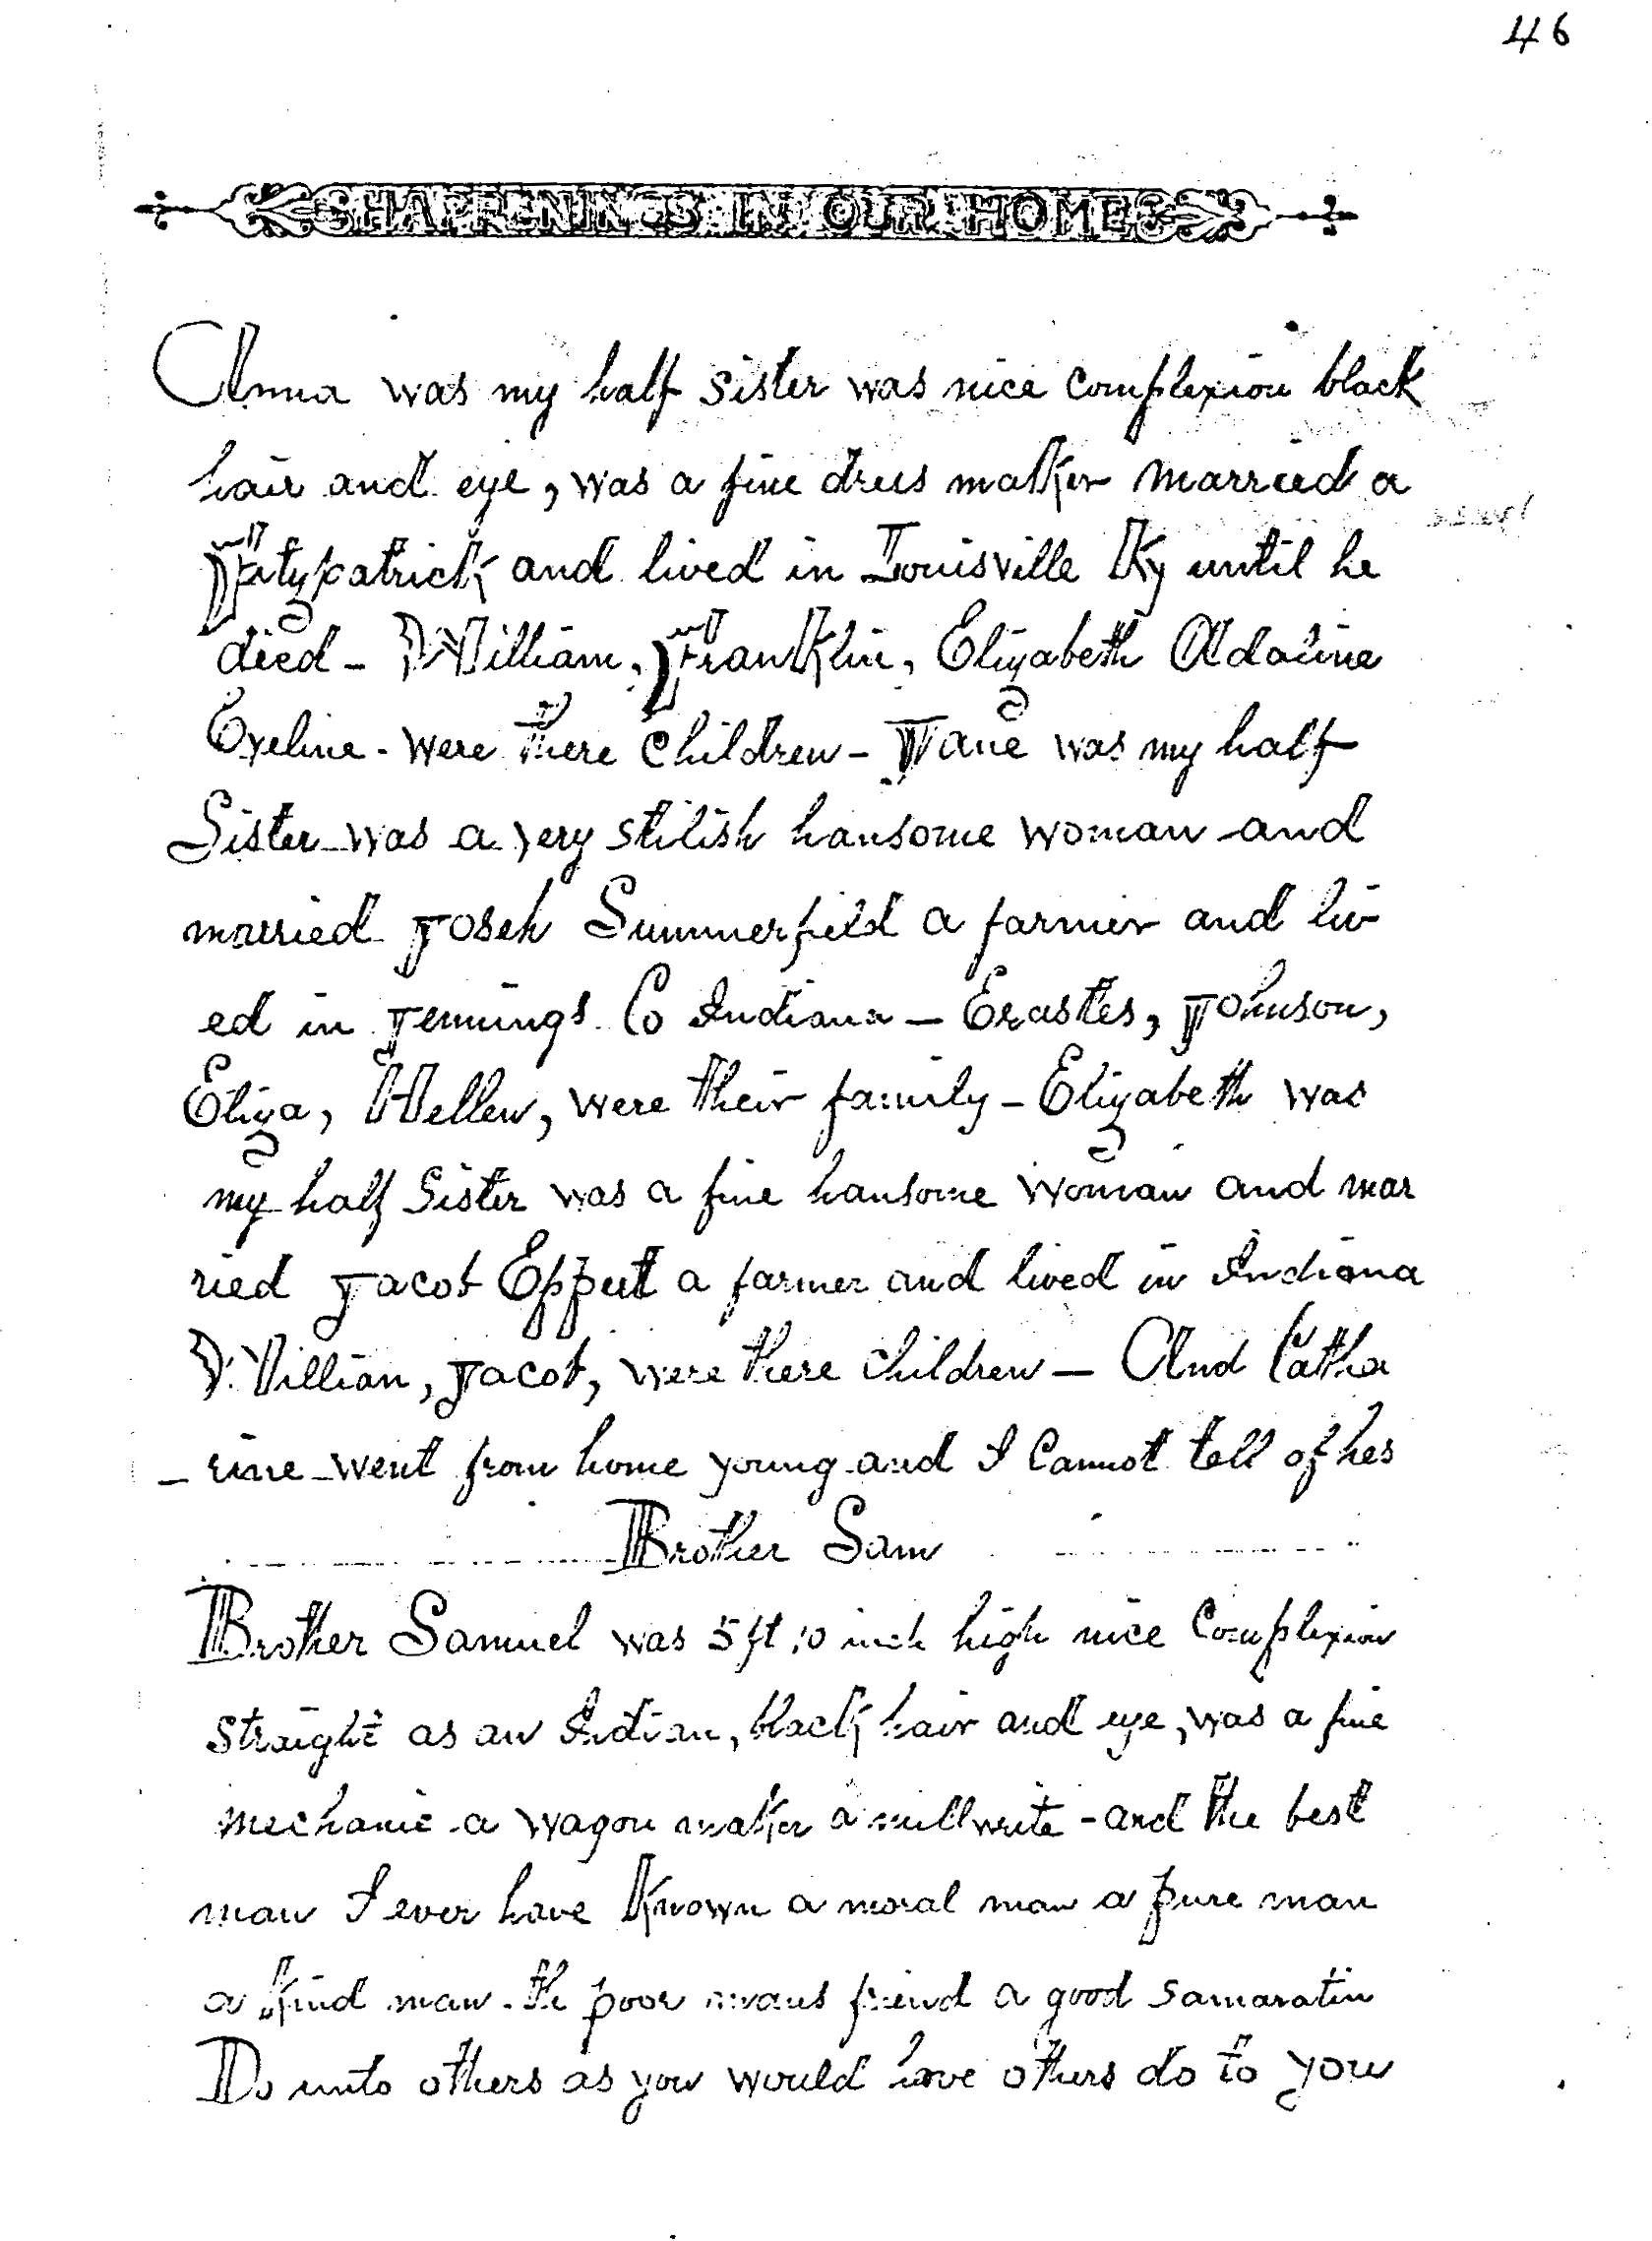 46
HAPPENINGS IN OUR HOME
Anna was my half sister was nice complexion black
hair and eye, was a fine dress maker married a
Fitzpatrick and lived in Louisville Ky until he
died - William, Franklin, Elizabeth Adaline
Eveline - were there children - Jane was my half
Sister was a very stilish hansome woman and
married Joseh Summerfield a farmer and liv
ed in Jennings Co Indiana - Erastes, Johnson,
Eliza, Hellen, were their family - Elizabeth was
my half Sister was a fine hansome woman and mar
ried Jacob Eppert a farmer and lived in Indiana
William, Jacob, were there children - And Catha
- rine went from home young and I cannot tell of her
Brother Sam
Brother Samuel was 5 ft 10 inch high nice Complexion
straight as an Indian, black hair and eye, was a fine
mechanic a wagon maker a millwrite - and the best
man I ever have Known a moral man a pure man
a kind man - the poor mans friend a good samaratin
Do unto others as you would have others do to you